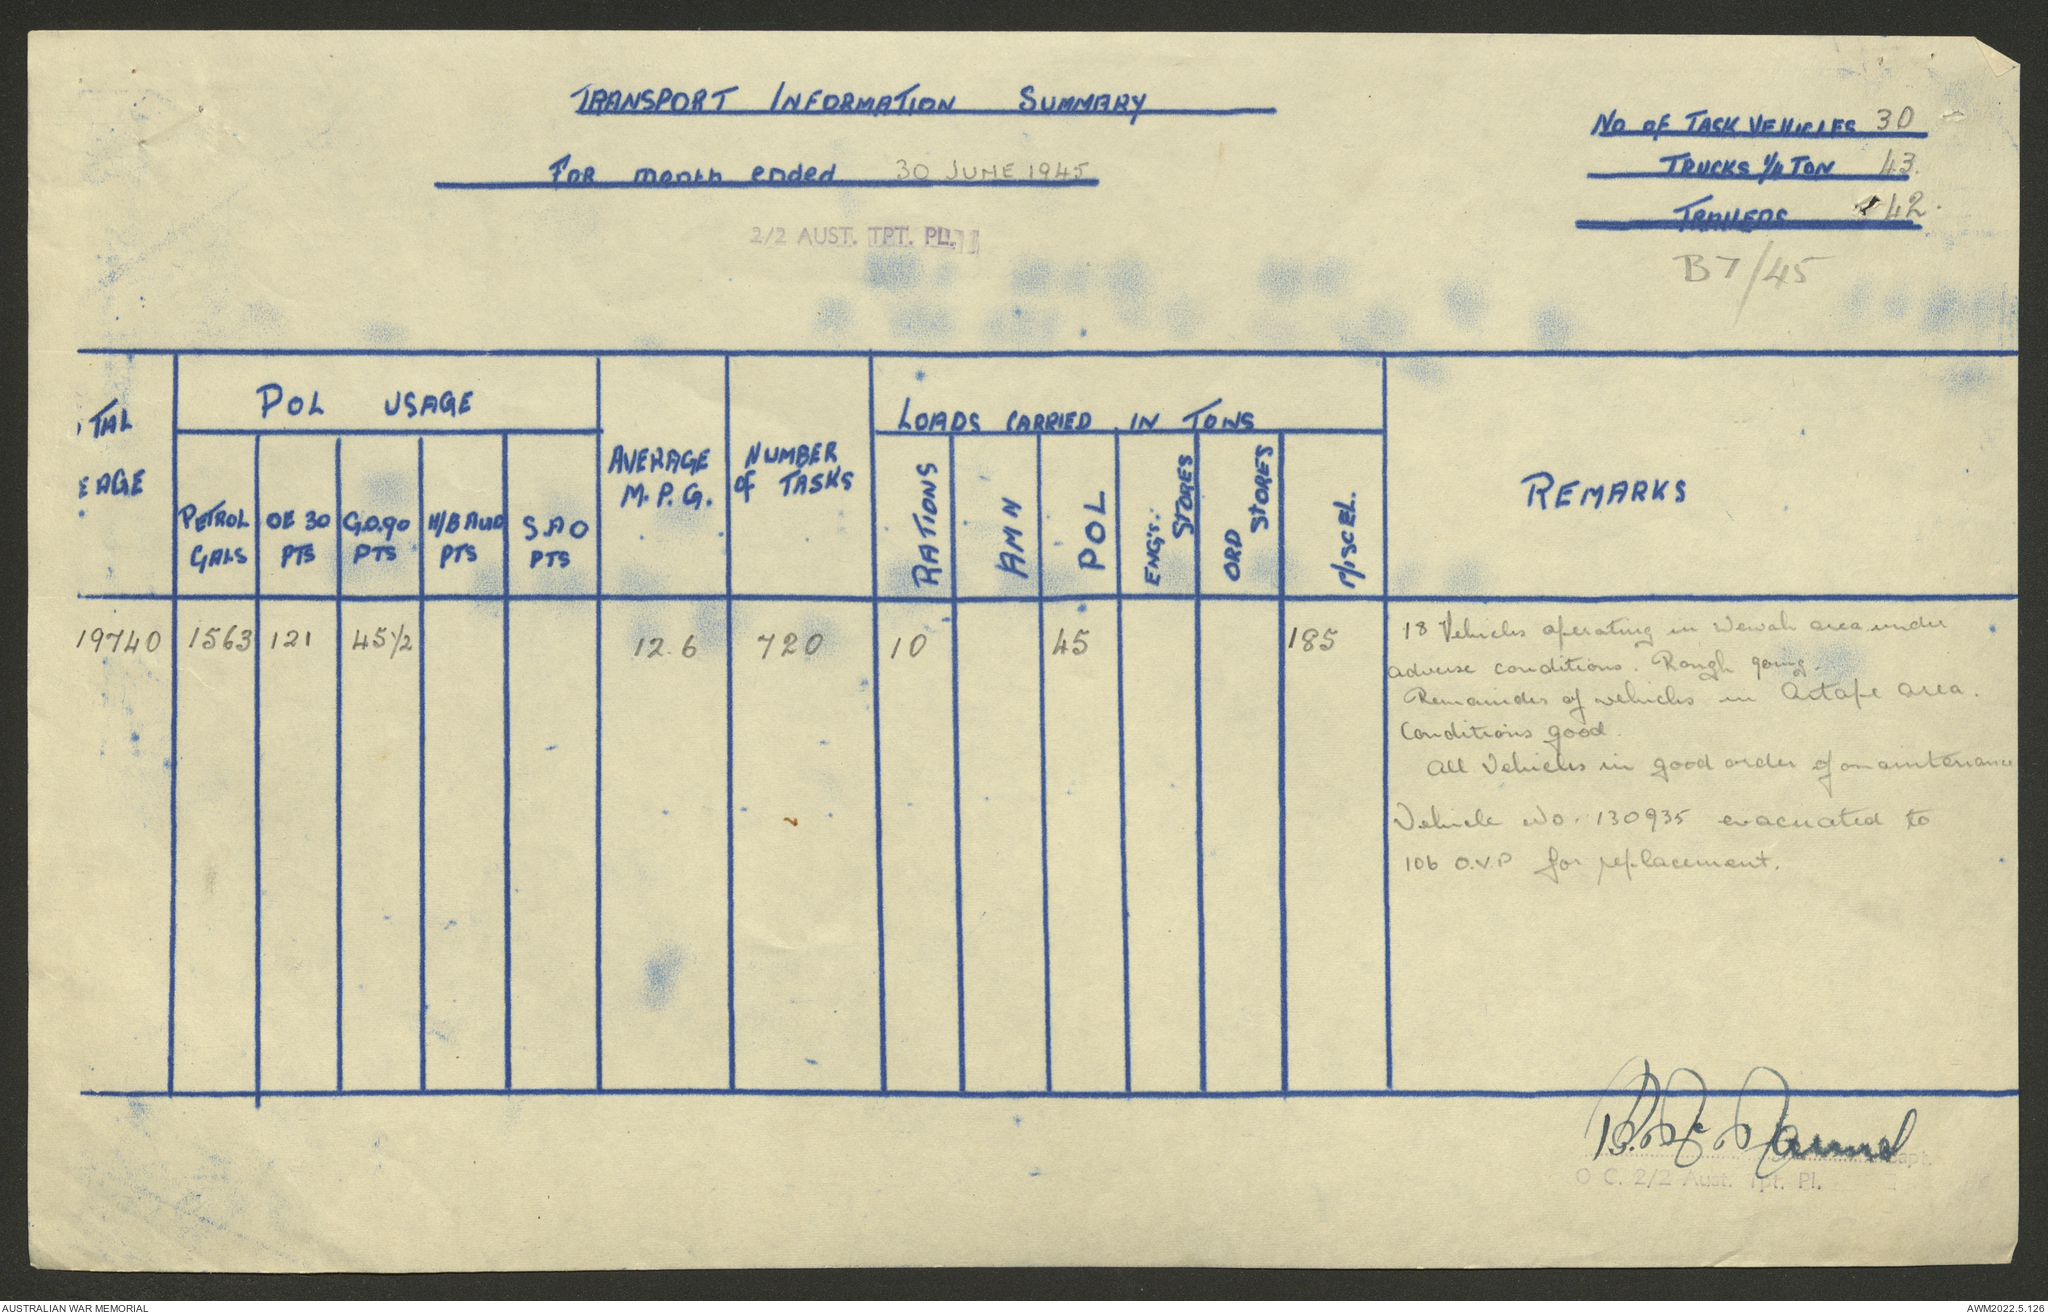 TRANSPORT INFORMATION SUMMARY
No of TASK VEHICLES 30
For month ended 30 JUNE 1945
TRUCKS 1/4 TON 43.
TRAILERS 42.
2/2 AUST. TPT. PL.
B7/45
TAL
EAGE
POL USAGE
PETROL GALS
OE 30 PTS
G.O.90 PTS
H/B PTS
S A O PTS
AVERAGE M.P.G.
NUMBER of TASKS
LOADS CARRIED IN TONS
RATIONS
AMN
POL
ENG'S. STORES
ORD STORES
MISCEL.
REMARKS
19740 1563 121 45 1/2 12.6 720 10 45 185
18 Vehicles operating in Wewak area under
adverse conditions. Rough going.
Remainder of vehicles in Aitape area.
Conditions good.
All Vehicles in good order of maintenance
Vehicle No. 130935 evacuated to
106 O.V.P for replacement.
Capt.
O C. 2/2 Aust. Tpt. Pl.
AUSTRALIAN WAR MEMORIAL
AWM2022.5.126